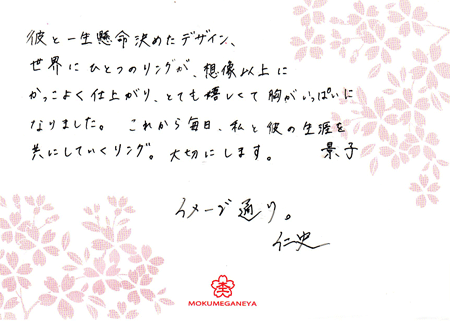 彼と一生懸命決めたデザイン、
世界にひとつのリングが、想像以上に
かっこよく仕上がり、とても嬉しくて胸がいっぱいに
なりました。 これから毎日、私と彼の生涯を
共にしていくリング。大切にします。 景子
イメージ通り。
仁史
MOKUMEGANEYA